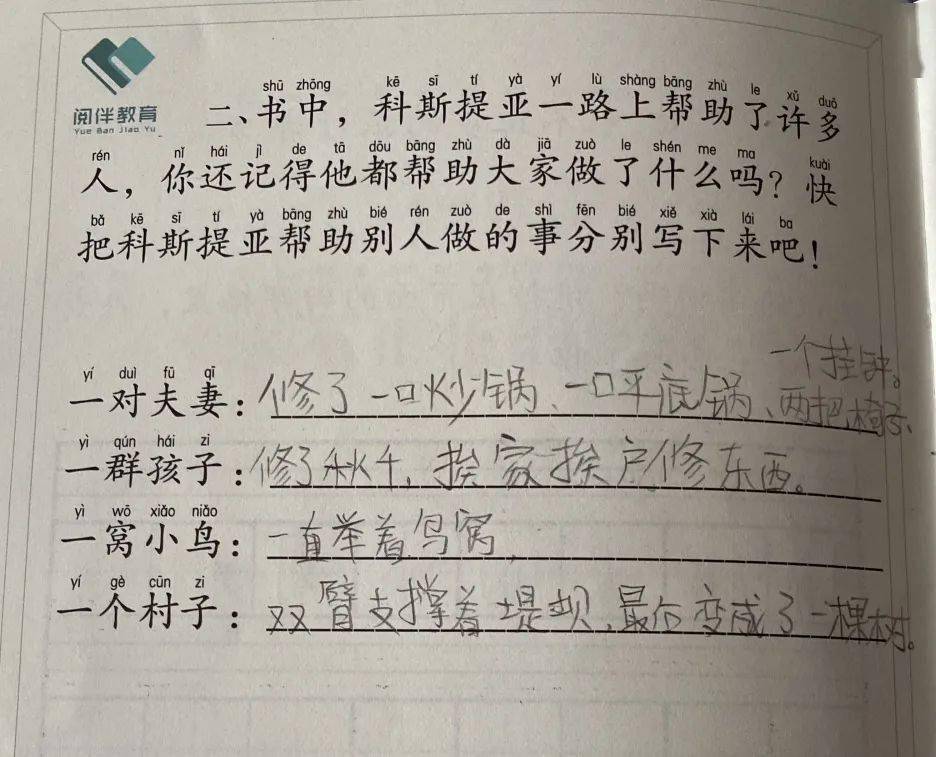 阅伴教育
Yue Ban Jiao Yu
shū zhōng kē sī tí yà yí lù shàng bāng zhù le xǔ duō
二、书中，科斯提亚一路上帮助了许多
rén nǐ hái jì de tā dōu bāng zhù dà jiā zuò le shén me ma kuài
人，你还记得他都帮助大家做了什么吗？快
bǎ kē sī tí yà bāng zhù bié rén zuò de shì fēn bié xiě xià lái ba
把科斯提亚帮助别人做的事分别写下来吧！
yí duì fū qī
一对夫妻：修了一口炒锅、一口平底锅、两把椅子、
一个挂钟。
yì qún hái zi
一群孩子：修了秋千，挨家挨户修东西。
yì wō xiǎo niǎo
一窝小鸟：一直举着鸟窝，
yí gè cūn zi
一个村子：双臂支撑着堤坝，最后变成了一棵树。